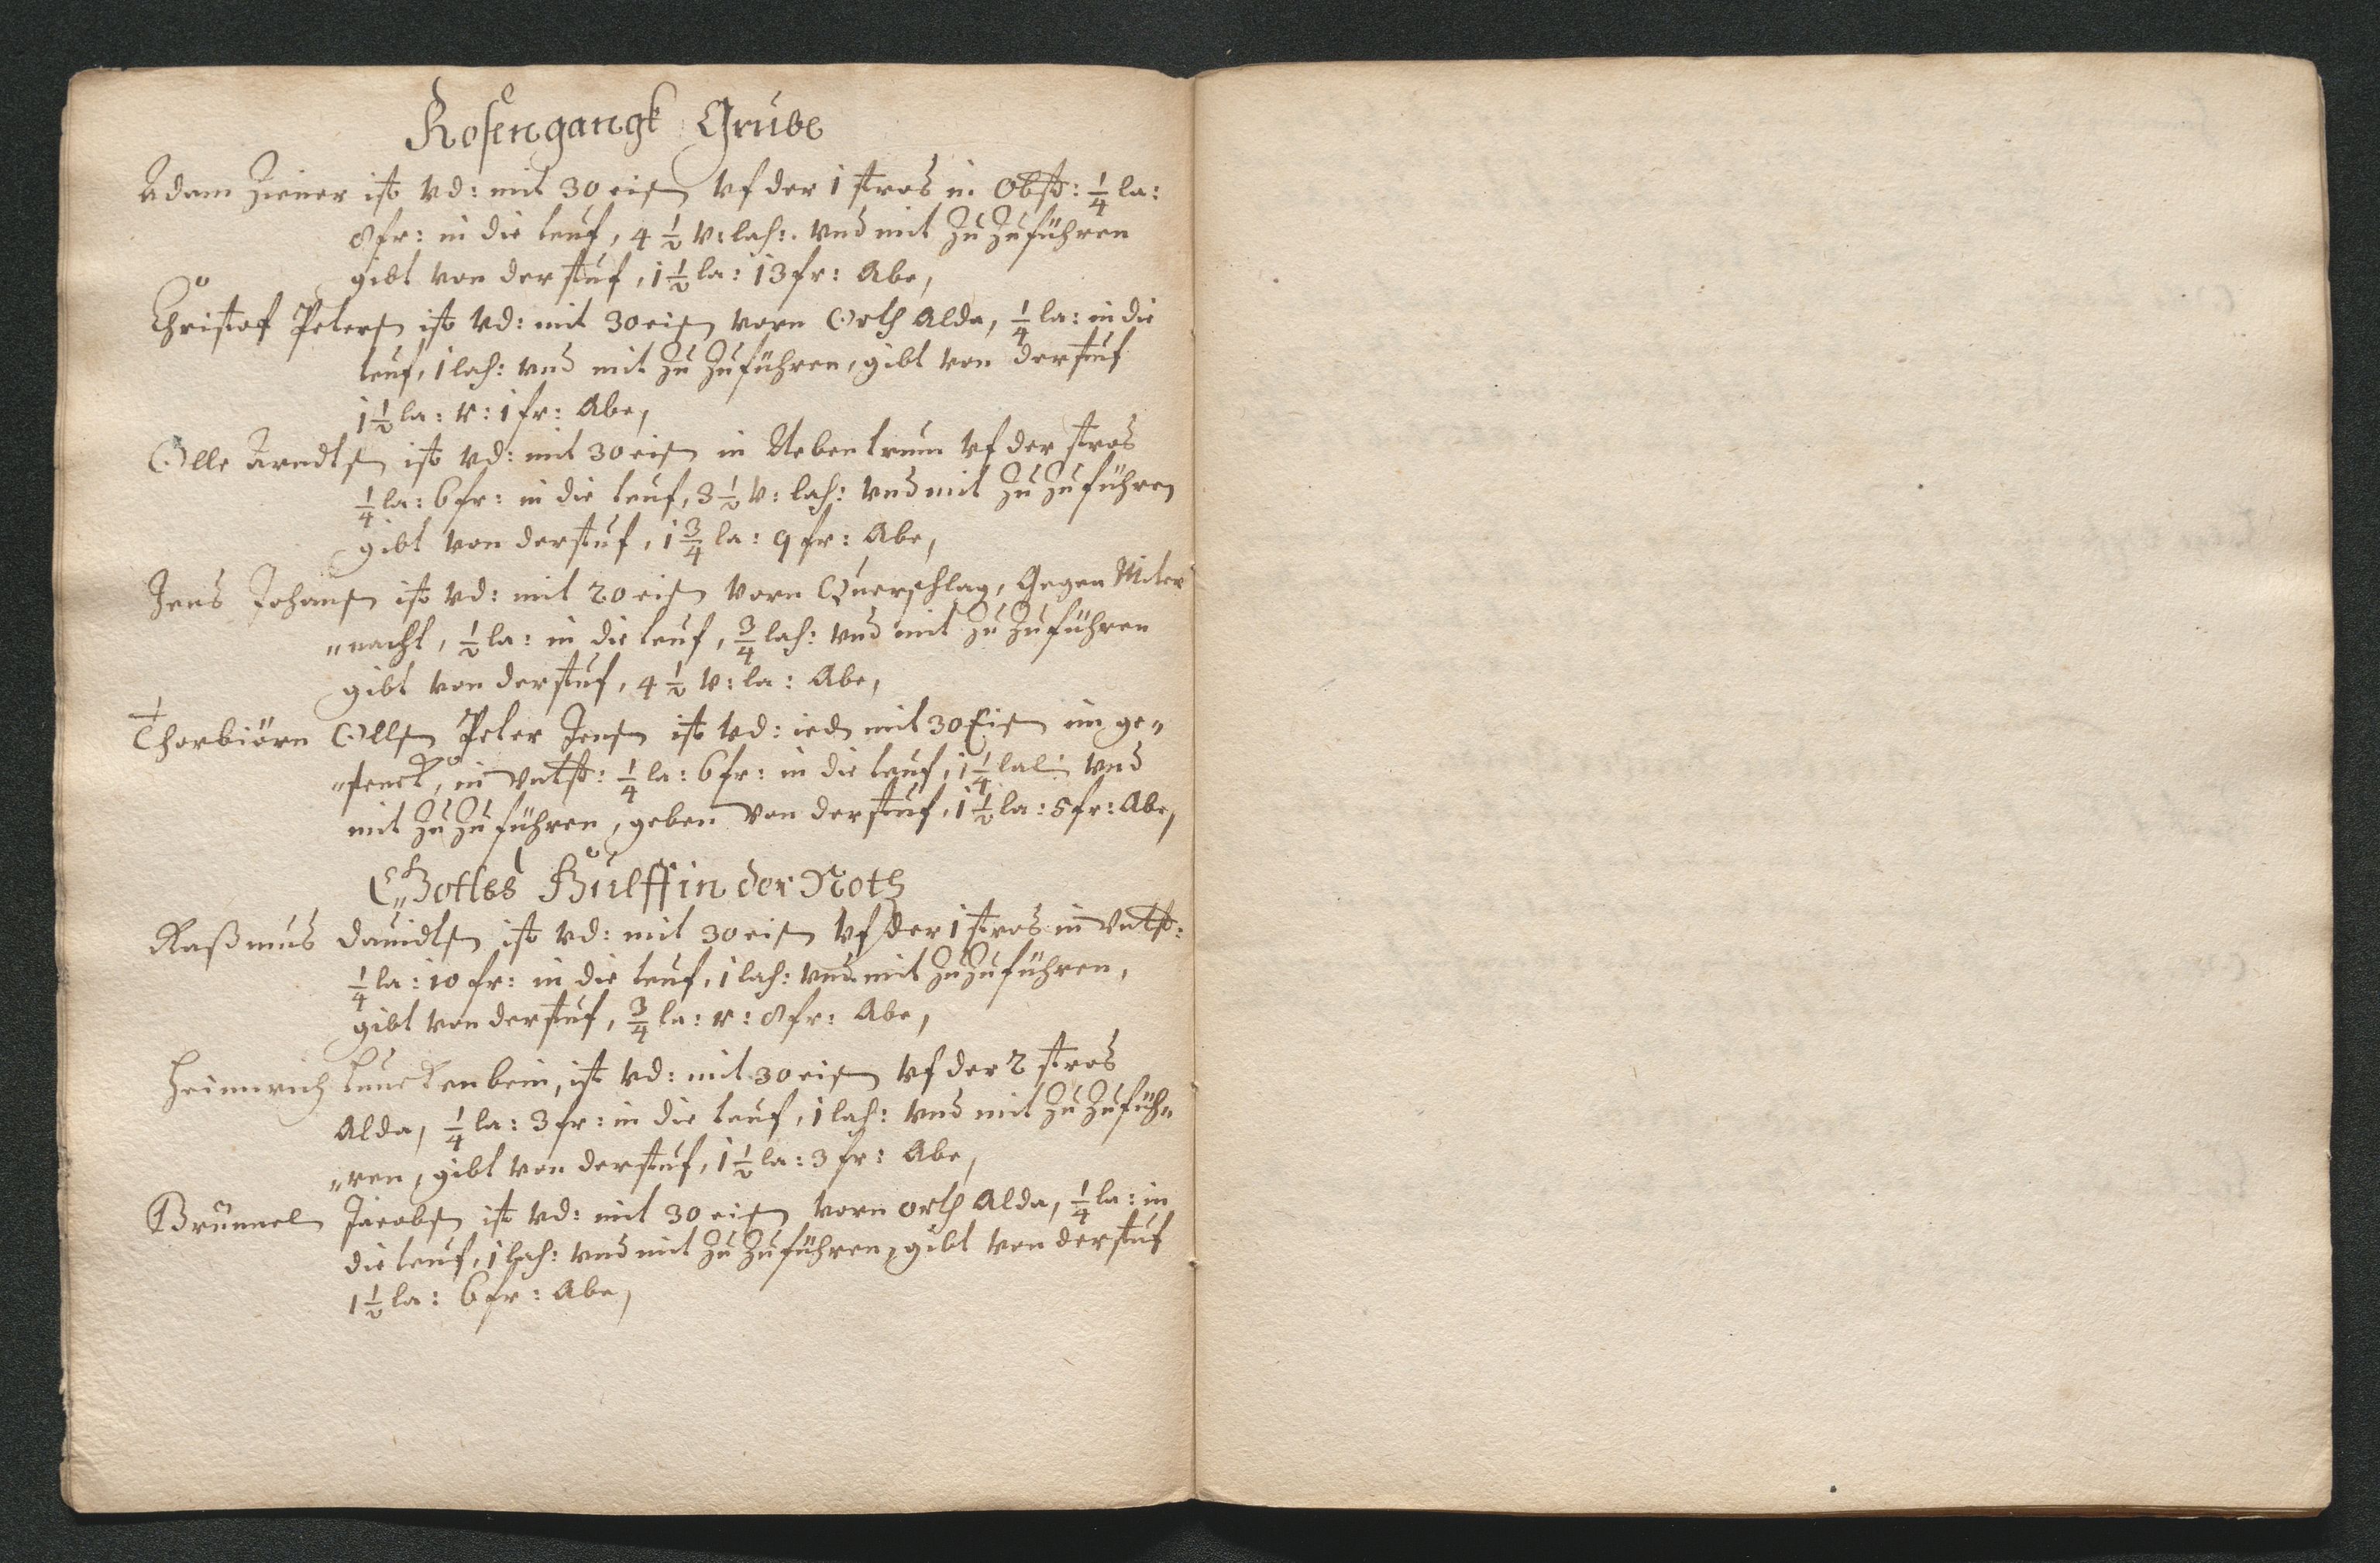 Rosengangk Grube
Adam Ziener ist vd: mit 30 eisen vf der 1 stros in Obst: 1/4 la:
8 fr: in die teuf, 4 1/2 v: lah: vnd mit Zu Zuführen
gibt von der stuf, 1 1/2 la: 13 fr: Abe,
Christof Petersen ist vd: mit 30 eisen vorn Orth Alda, 1/4 la: in die
teuf, 1 lah: vnd mit Zu Zuführen, gibt von der stuf
1 1/2 la: v: 1 fr: Abe,
Olle Arndtsen ist vd: mit 30 eisen in Nebentrum vf der stros
1/4 la: 6 fr: in die teuf, 3 1/2 v: lah: vnd mit Zu Zuführen
gibt von der stuf, 1 3/4 la: 9 fr: Abe,
Jens Johansen ist vd: mit 20 eisen vorn Querschlag, Gegen Miter
"nacht, 1/2 la: in die teuf, 3/4 lah: vnd mit Zu Zuführen
gibt von der stuf, 4 1/2 v: la: Abe,
Thorbiörn Ollsen Peter Jensen ist vd: ied mit 30 Eisen im ge"
"senck, in Vntst: 1/4 la: 6 fr: in die teuf, 1 1/4 lal: vnd
mit Zu Zuführen, geben von der stuf, 1 1/2 la: 5 fr: Abe,
Gottes Hülff in der Noth
Raßmus Dauidtsen ist vd: mit 30 eisen vf der 1 stros in Vntst:
1/4 la: 10 fr: in die teuf, 1 lah: vnd mit Zu Zuführen,
gibt von der stuf, 3/4 la: v: 8 fr: Abe,
Heinnrich Luuckenbein, ist vd: mit 30 eisen vf der 2 stros
Alda, 1/4 la: 3 fr: in die teuf, 1 lah: vnd mit Zu Zufüh"
"ren, gibt von der stuf, 1 1/2 la: 3 fr: Abe,
Brünnel Jacobsen ist vd: mit 30 eisen vorn orth Alda, 1/4 la: in
die teuf, 1 lah: vnd mit Zu Zuführen, gibt von der stuf
1 1/2 la: 6 fr: Abe,